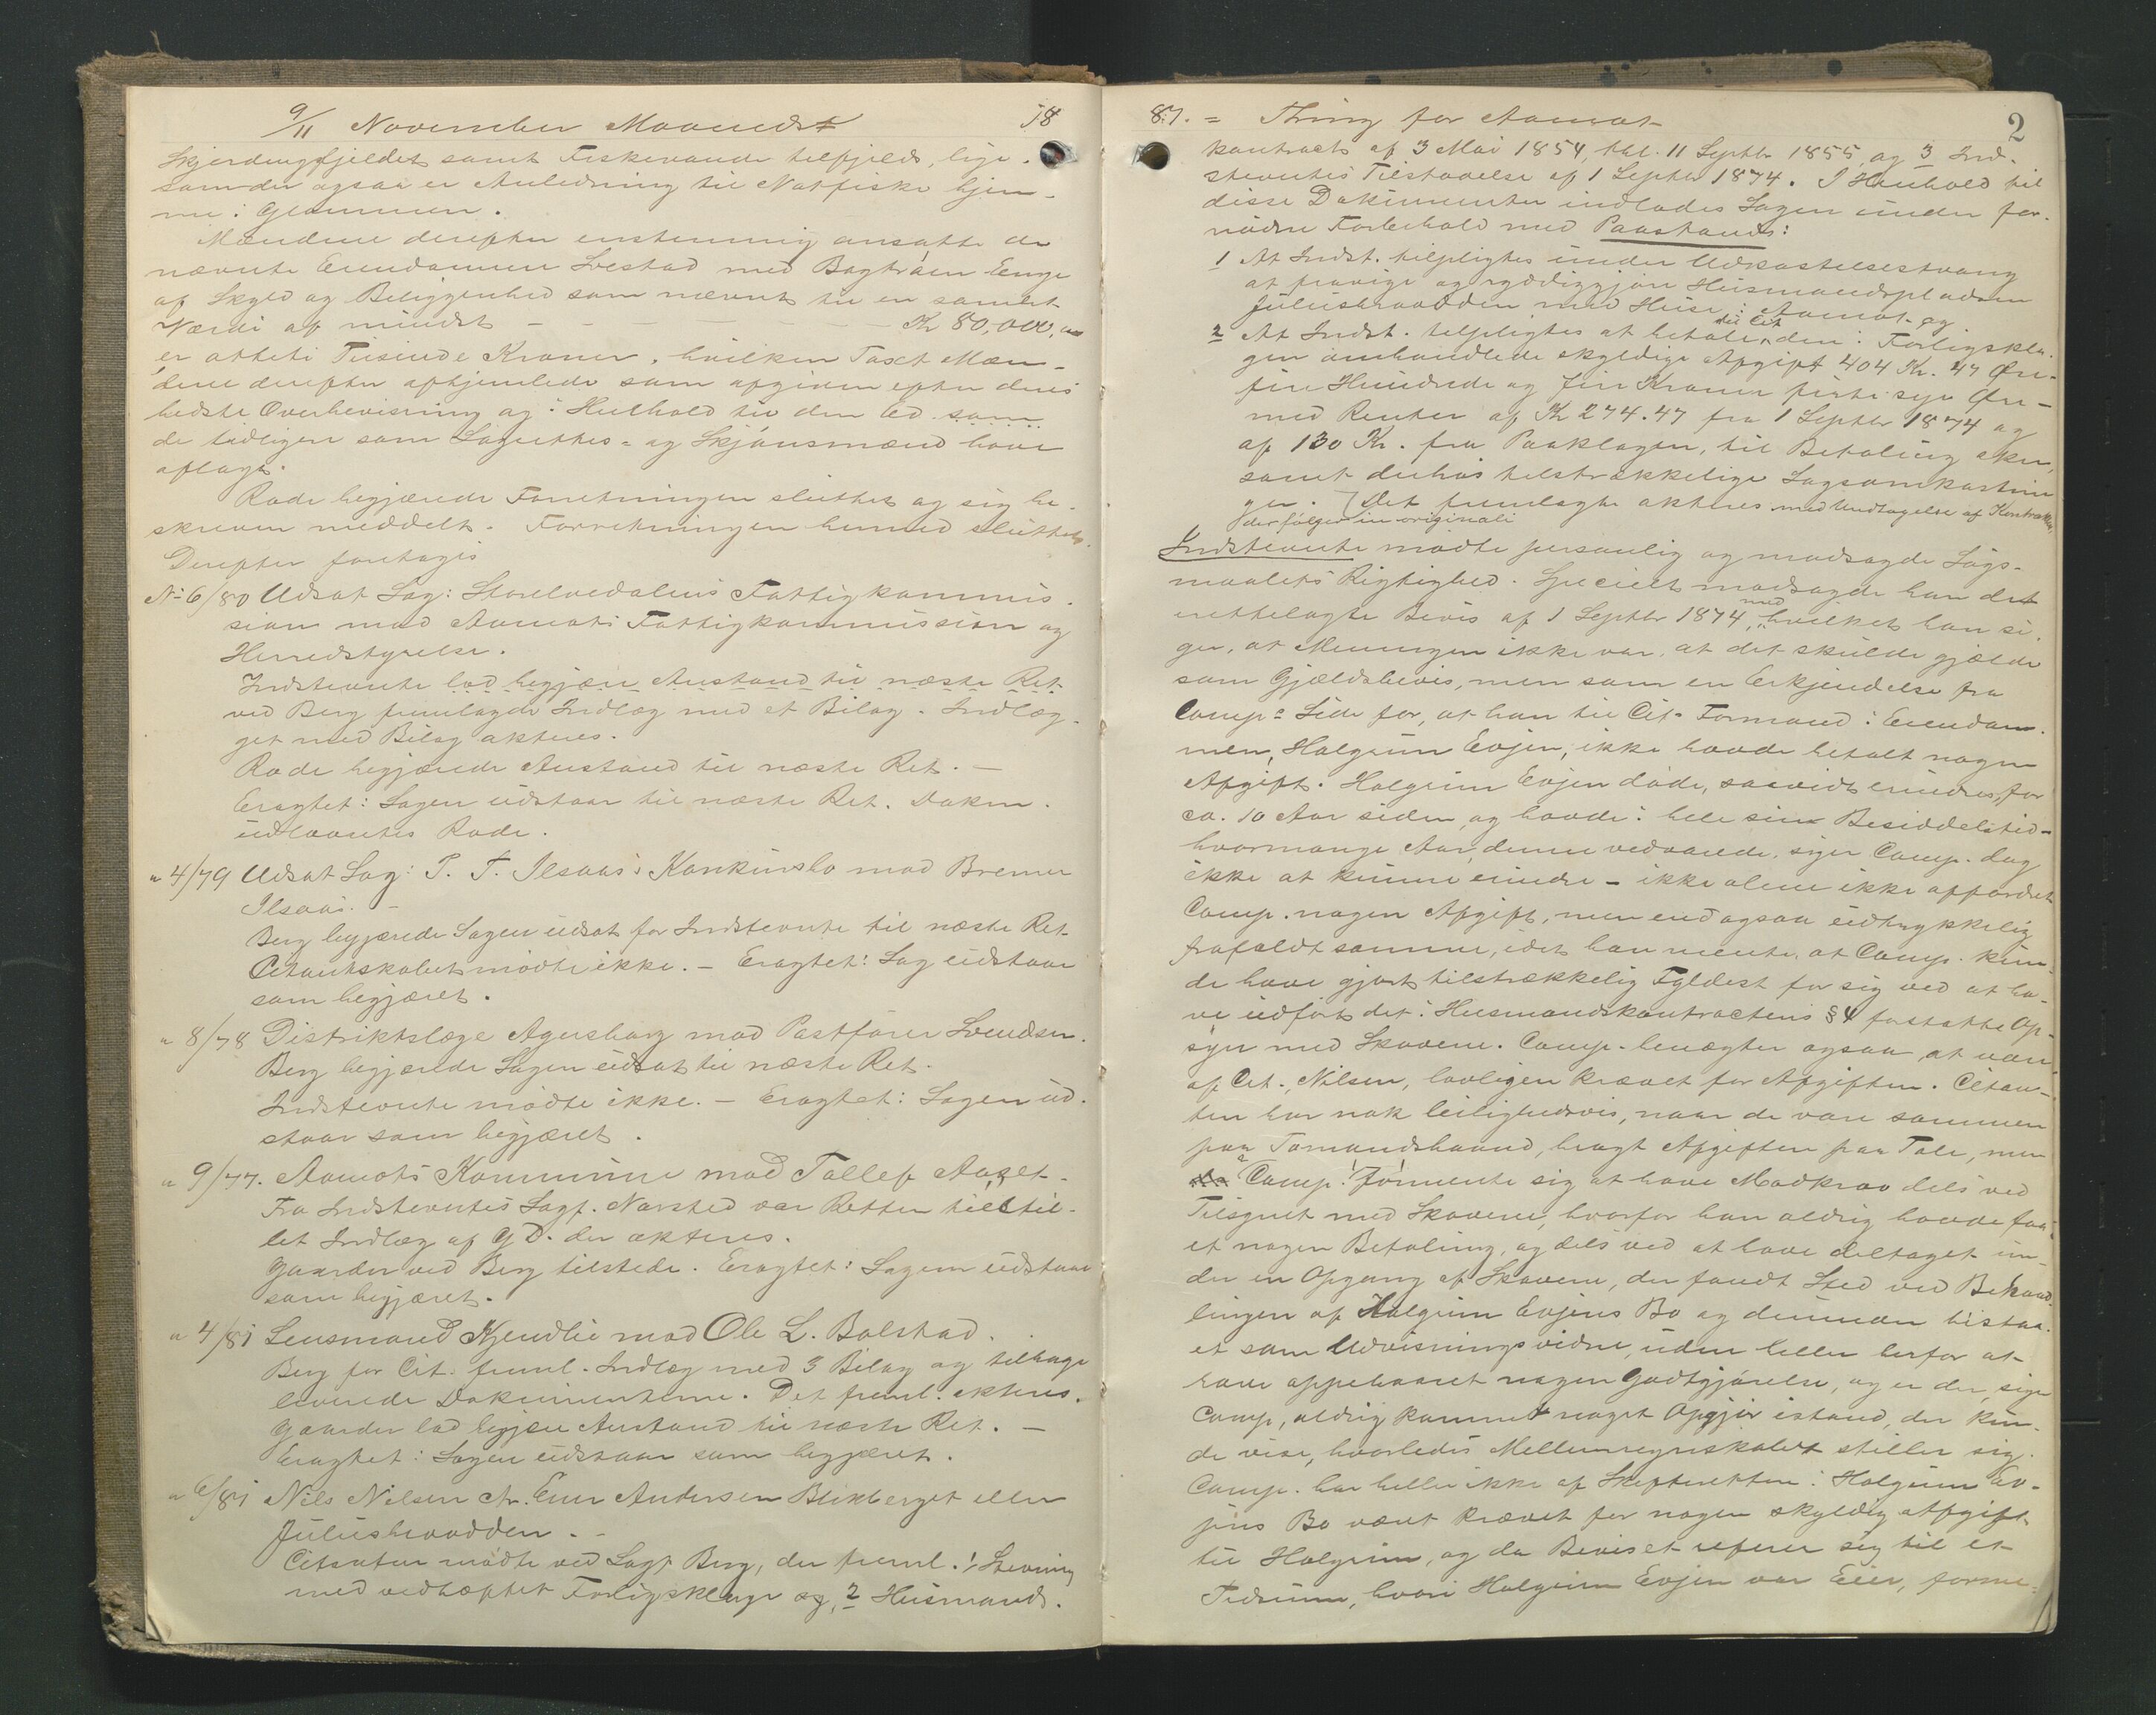 9/11 November Maaneds 18
Skjerdingfjeldet samt Fiskevande tilfjelds, lige-
som der ogsaa er Anledning til Notfiske hjem-
me i Glommen.
Mændene derefter enstemmig ansatte de
nævnte Eiendomme Løvstad med Bagtraaen Enge
af Skyld og Beliggenhed som nævnt til en samlet
Værdi af mindst - - - - Kr 80,000,00
er otteti Tusinde Kroner, hvilken Taxt Mæn-
dene derefter afhjemlede som afgiven efter deres
bedste Overbevisning og i Henhold til den Ed som
de tidligere som Lagrettes- og Skjønsmænd have
aflagt.
Rode begjærede Forretningen sluttet og sig be-
skreven meddelt. Forretningen hermed sluttet.
Derefter foretoges
No 6/80 Udsat Sag: Storelvedalens Fattigkommis-
sion mod Aamots Fattigkommission og
Herredstyrelse.
Indstevnte lod begjære Anstand til næste Ret
ved Berg fremlagde Indlæg med et Bilag. Indlæg-
get med Bilag akteres.
Rode begjærede Anstand til næste Ret. -
Eragtet: Sagen udstaar til næste Ret. Dokm.
udlaantes Rode.
" 4/79 Udsat Sag: P. T. Ilsaas's Konkursbo mod Bremer
Ilsaas. -
Berg begjærede Sagen udsat for Indstevnte til næste Ret
Citantskabet mødte ikke. - Eragtet: Sag udstaar
som begjæret.
" 8/78 Distriktslæge Agersborg mod Postfører Svendsen.
Berg begjærede Sagen udsat til næste Ret.
Indstevnte mødte ikke. - Eragtet: Sagen ud-
staar som begjæret.
" 9/77. Aamots Kommune mod Tollef Aaset.
Fra Indstevntes Sagf. Narsted var Retten tilstil-
let Indlæg af G D. der akteres.
Gaarder ved Berg tilstede. Eragtet: Sagen udstaar
som begjæret.
" 4/81 Lensmand Kjendlie mod Ole L. Bolstad.
Berg for Cit. freml. Indlæg med 3 Bilag og tilbage
leverede Dokumenterne. Det freml. akteres.
Gaarder lod begjære Anstand til næste Ret. -
Eragtet: Sagen udstaar som begjæret.
" 6/81 Nils Nilsen ctr. Even Andersen Blikberget eller
Juliusbraadden. -
Citanten mødte ved Sagf. Berg, der freml. 1 Stevning
med vedhæftet Forligsklage og, 2 Husmands-
81. = Thing for Aamot 2
kontract af 3 Mai 1854, thl. 11 Septbr 1855, og 3 Ind-
stevntes Tilstaaelse af 1 Septbr 1874. I Henhold til
disse Dokumenter indlades Sagen under for-
nøden Forbehold med Paastand:
1 At Indst. tilpligtes under Udkastelsestvang
at fravige og ryddiggjøre Husmandspladsen
Juliusbraadden med Huse i Aamot og
2 At Indst. tilpligtes at betale til Cit. den i Forligskla-
gen omhandlede skyldige Afgift 404 Kr. 47 Øre -
fire Hundrede og fire Kroner firti syv Øre -
med Renter af Kr 274.47 fra 1 Septbr 1874 og
af 130 Kr. fra Paaklagen, til Betaling sker,
samt derhos tilstrækkelige Sagsomkostnin
ger. Det fremlagte akteres med Undtagelse af Kontrakten,
der følger in originali
Indstevnte mødte personlig og modsagde Søgs-
maalets Rigtighed. Specielt modsagde han det
irettelagte Bevis af 1 Septbr 1874, med hvilket han si-
ger, at Meningen ikke var, at det skulde gjælde
som Gjældsbevis, men som en Erkjendelse fra
Comps Side for, at han til Cit. Formand i Eiendom-
men, Halgrim Evjen, ikke havde betalt nogen
Afgift. Halgrim Evjen døde, saavidt erindres, for
ca. 10 Aar siden, og havde i hele sin Besiddelstid -
hvormange Aar, denne vedvarede, siger Comp. dog
ikke at kunne erindre - ikke alene ikke affordret
Comp. nogen Afgift, men endogsaa udtrykkelig
frafaldt samme, idet han mente, at Comp. kun-
de have gjort tilstrækkelig Fyldest for sig ved at ha-
ve udført det i Husmandskontractens § 4 fastsatte Op-
syn med Skovene. Comp. benægter ogsaa, at være
af Cit., Nilsen, lovligen krævet for Afgiften. Citan-
ten har nok leilighedsvis, naar de vare sammen
paa Tomandshaand, bragt Afgiften paa Tale, men
Comp. formente sig at have Modkrav dels ved
Tilsynet med Skovene, hvorfor han aldrig havde faa-
et nogen Betaling, og dels ved at have deltaget un-
der en Opgang af Skovene, der fandt Sted ved Behand-
lingen af Halgrim Evjens Bo og derunder bistaa-
et som Udvisningsvidne, uden heller herfor at
have oppebaaret nogen Godtgjørelse, og er der, siger
Comp, aldrig kommet noget Opgjør istand, der kun-
de vise, hvorledes Mellemregnskabet stiller sig.
Comp. har heller ikke af Skifteretten i Halgrim Ev-
jens Bo været krævet for nogen skyldig Afgift
til Halgrim, og da Beviset referer sig til et
Tidsrum, hvori Halgrim Evjen var Eier, forme-